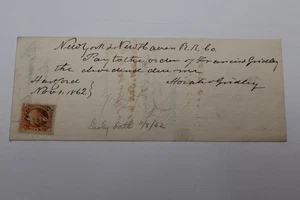 New York & New Haven R.R. Co
Pay to the order of Francis Gridley
the dividend due me
Hartford Horatio Gridley
Nov 1. 1862